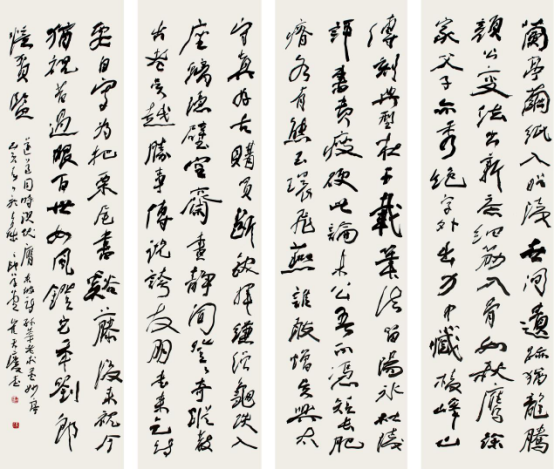 蘭亭繭紙入昭陵世間遺跡猶龍騰
顏公變法出新意細筋入骨如秋鷹徐
家父子亦秀絕字外出力中藏棱嶧山
傳刻典型在千載筆法留陽冰杜陵
評書貴瘦硬此論未公吾不憑短長肥
瘠各有態玉環飛燕誰敢憎吳興太
守真好古購買斷缺揮縑繒龜趺入
座螭隱壁空齋晝靜聞登登奇蹤散
出走吳越勝事傳說誇友朋書來乞詩
要自寫為把栗尾書谿藤後來視今
猶視昔過眼百世如風鐙它年劉郎
憶賀監
還道同時須服膺 孫莘老求墨妙亭